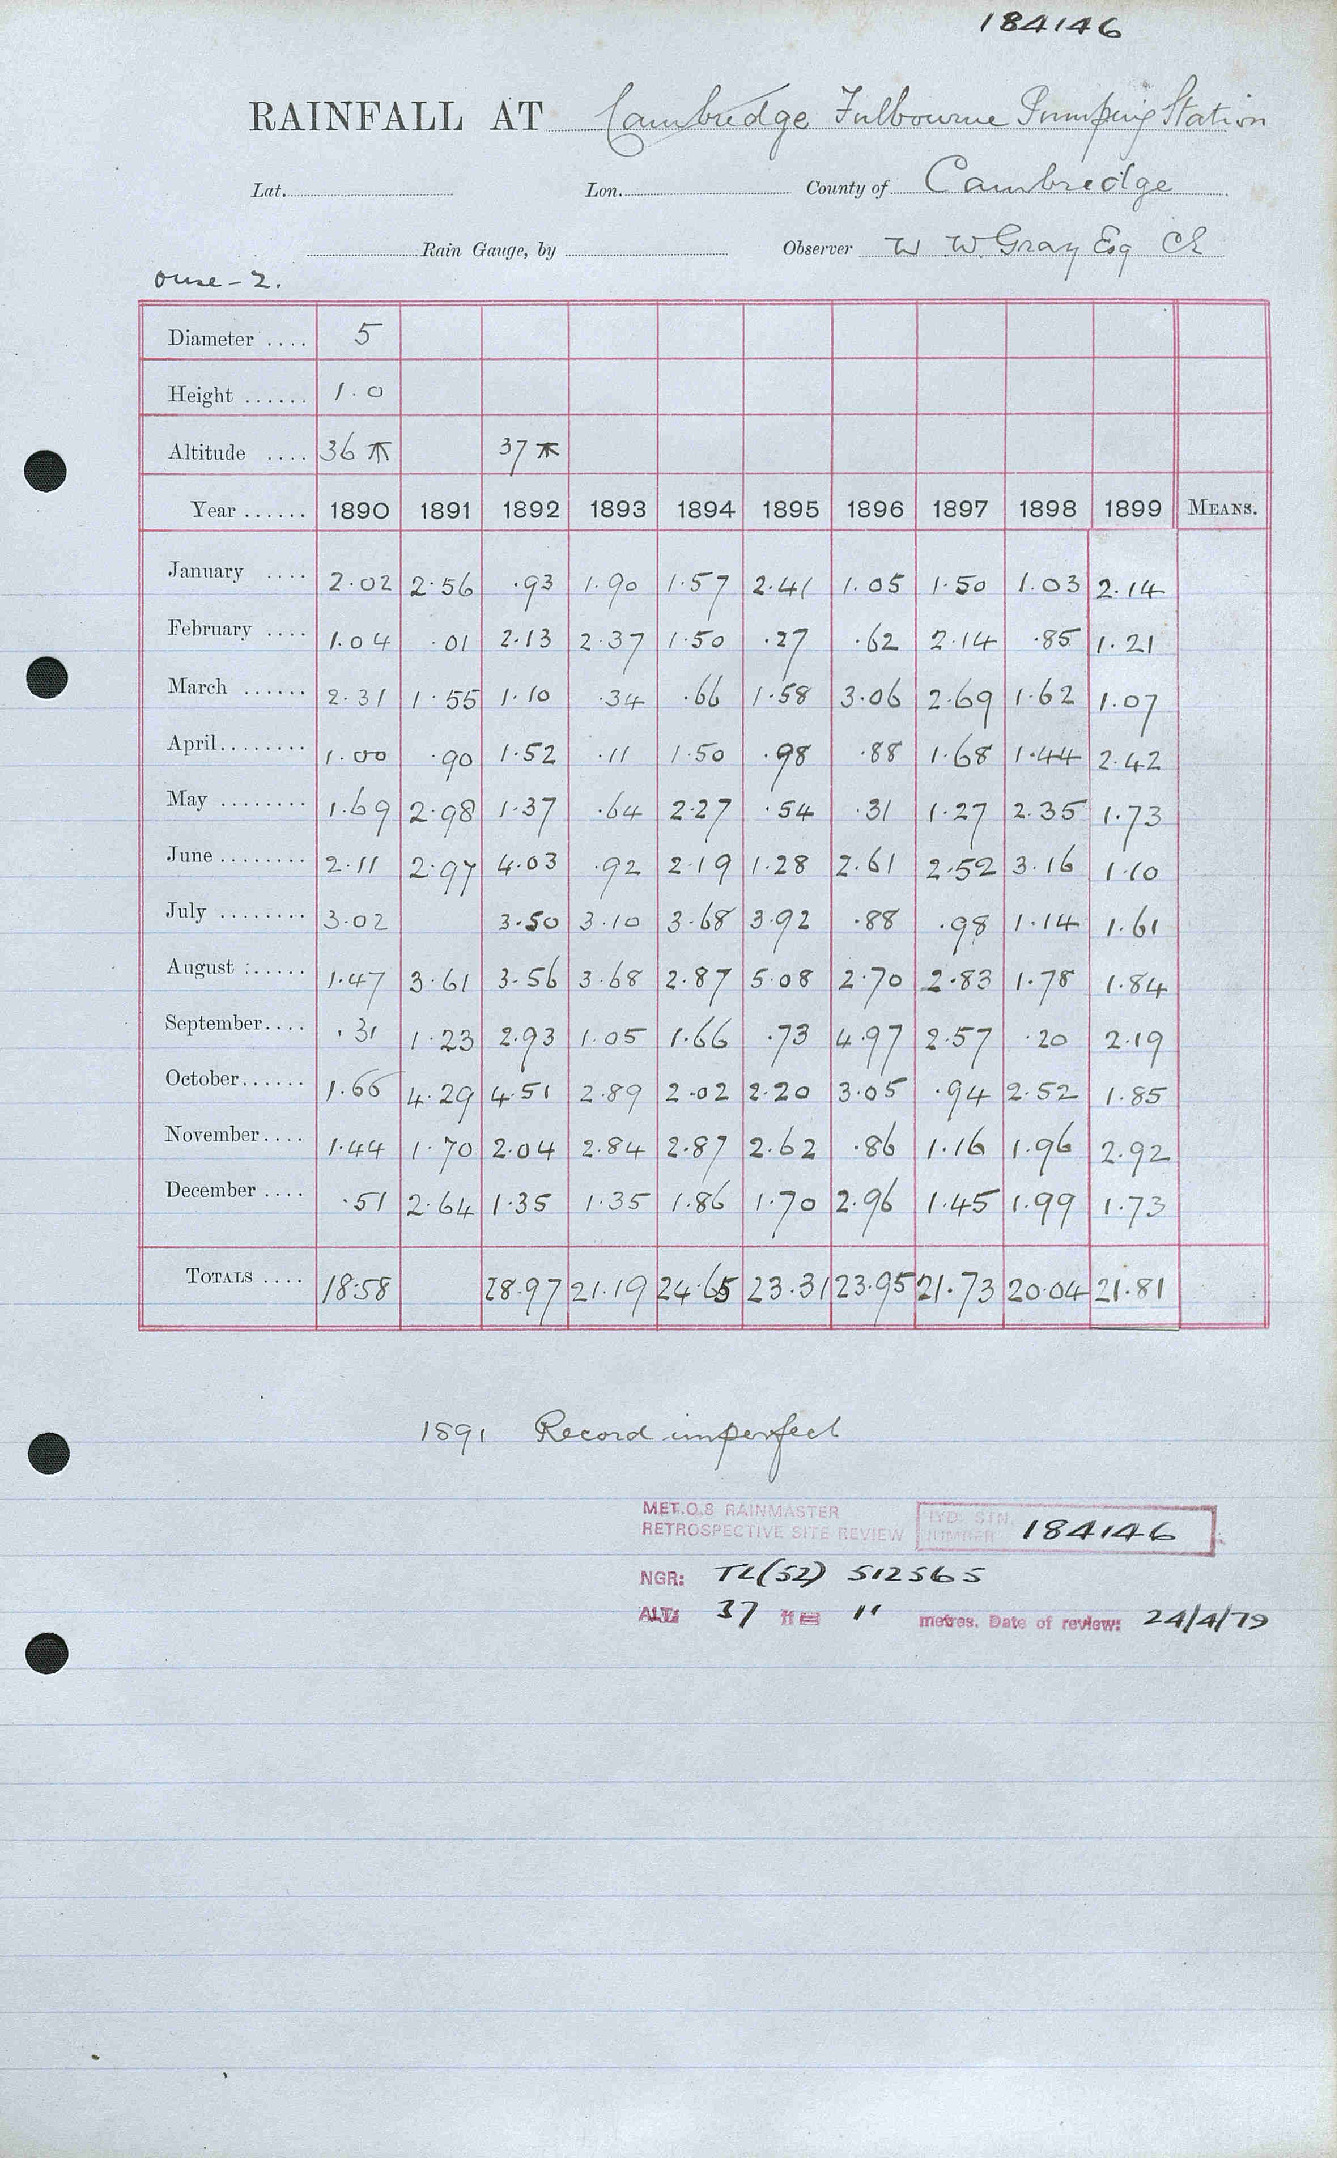 184146
RAINFALL AT Cambridge Fulbourne Pumping Station
Lat. Lon. County of Cambridge
Rain Gauge, by Observer W W. Gray Esq CE
Ouse - 2.
Diameter .... 5
Height ...... 1.0
Altitude .... 36 37
Year ...... 1890 1891 1892 1893 1894 1895 1896 1897 1898 1899 MEANS.
January .... 2.02 2.56 .93 1.90 1.57 2.41 1.05 1.50 1.03 2.14
February .... 1.04 .01 2.13 2.37 1.50 .27 .62 2.14 .85 1.21
March ...... 2.31 1.55 1.10 .34 .66 1.58 3.06 2.69 1.62 1.07
April........ 1.00 .90 1.52 .11 1.50 .98 .88 1.68 1.44 2.42
May ........ 1.69 2.98 1.37 .64 2.27 .54 .31 1.27 2.35 1.73
June ........ 2.11 2.97 4.03 .92 2.19 1.28 2.61 2.52 3.16 1.10
July ........ 3.02 3.50 3.10 3.68 3.92 .88 .98 1.14 1.61
August ...... 1.47 3.61 3.56 3.68 2.87 5.08 2.70 2.83 1.78 1.84
September.... .31 1.23 2.93 1.05 1.66 .73 4.97 2.57 .20 2.19
October...... 1.66 4.29 4.51 2.89 2.02 2.20 3.05 .94 2.52 1.85
November.... 1.44 1.70 2.04 2.84 2.87 2.62 .86 1.16 1.96 2.92
December .... .51 2.64 1.35 1.35 1.86 1.70 2.96 1.45 1.99 1.73
TOTALS .... 18.58 28.97 21.19 24.65 23.31 23.95 21.73 20.04 21.81
1891 Record imperfect
MET.O.8 RAINMASTER
RETROSPECTIVE SITE REVIEW
HYD. STN. NUMBER 184146
NGR: TL(52) 512565
ALT: 37 ft = 11 metres. Date of review: 24/4/79